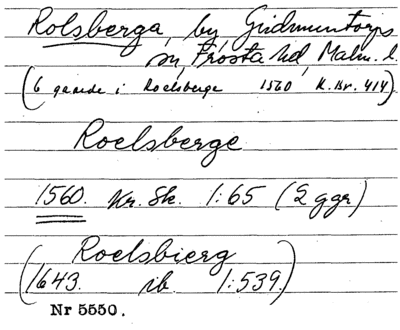 Rolsberga, by Gudmuntorps
sn, Frosta hd, Malm. l.
(6 gaarde i Roelsberge 1560 K. Br. 414)
Roelsberge
1560. Kr. Sk. 1:65 (2 ggr)
(Roelsbierg
1643. ib. 1:539.)
Nr 5550.